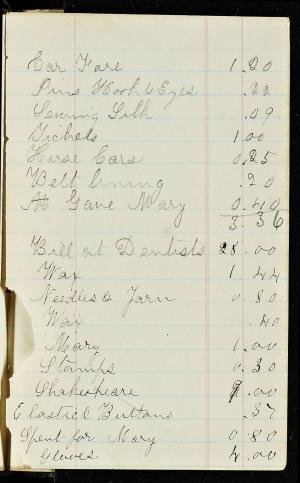 Car Fare 1.20
Pins Hook & Eyes .22
Sewing Silk .09
Tickets 1.00
Horse Cars 0.25
Belt lining .20
Gave Mary 0.40
3.36
Bill at Dentists 28.00
Wax 1.44
Needles & Yarn 0.80
Wax .40
Mary 1.00
Stamps 0.30
Shakespeare .00
Elastic & Buttons .37
Spent for Mary 0.80
Gloves 4.00